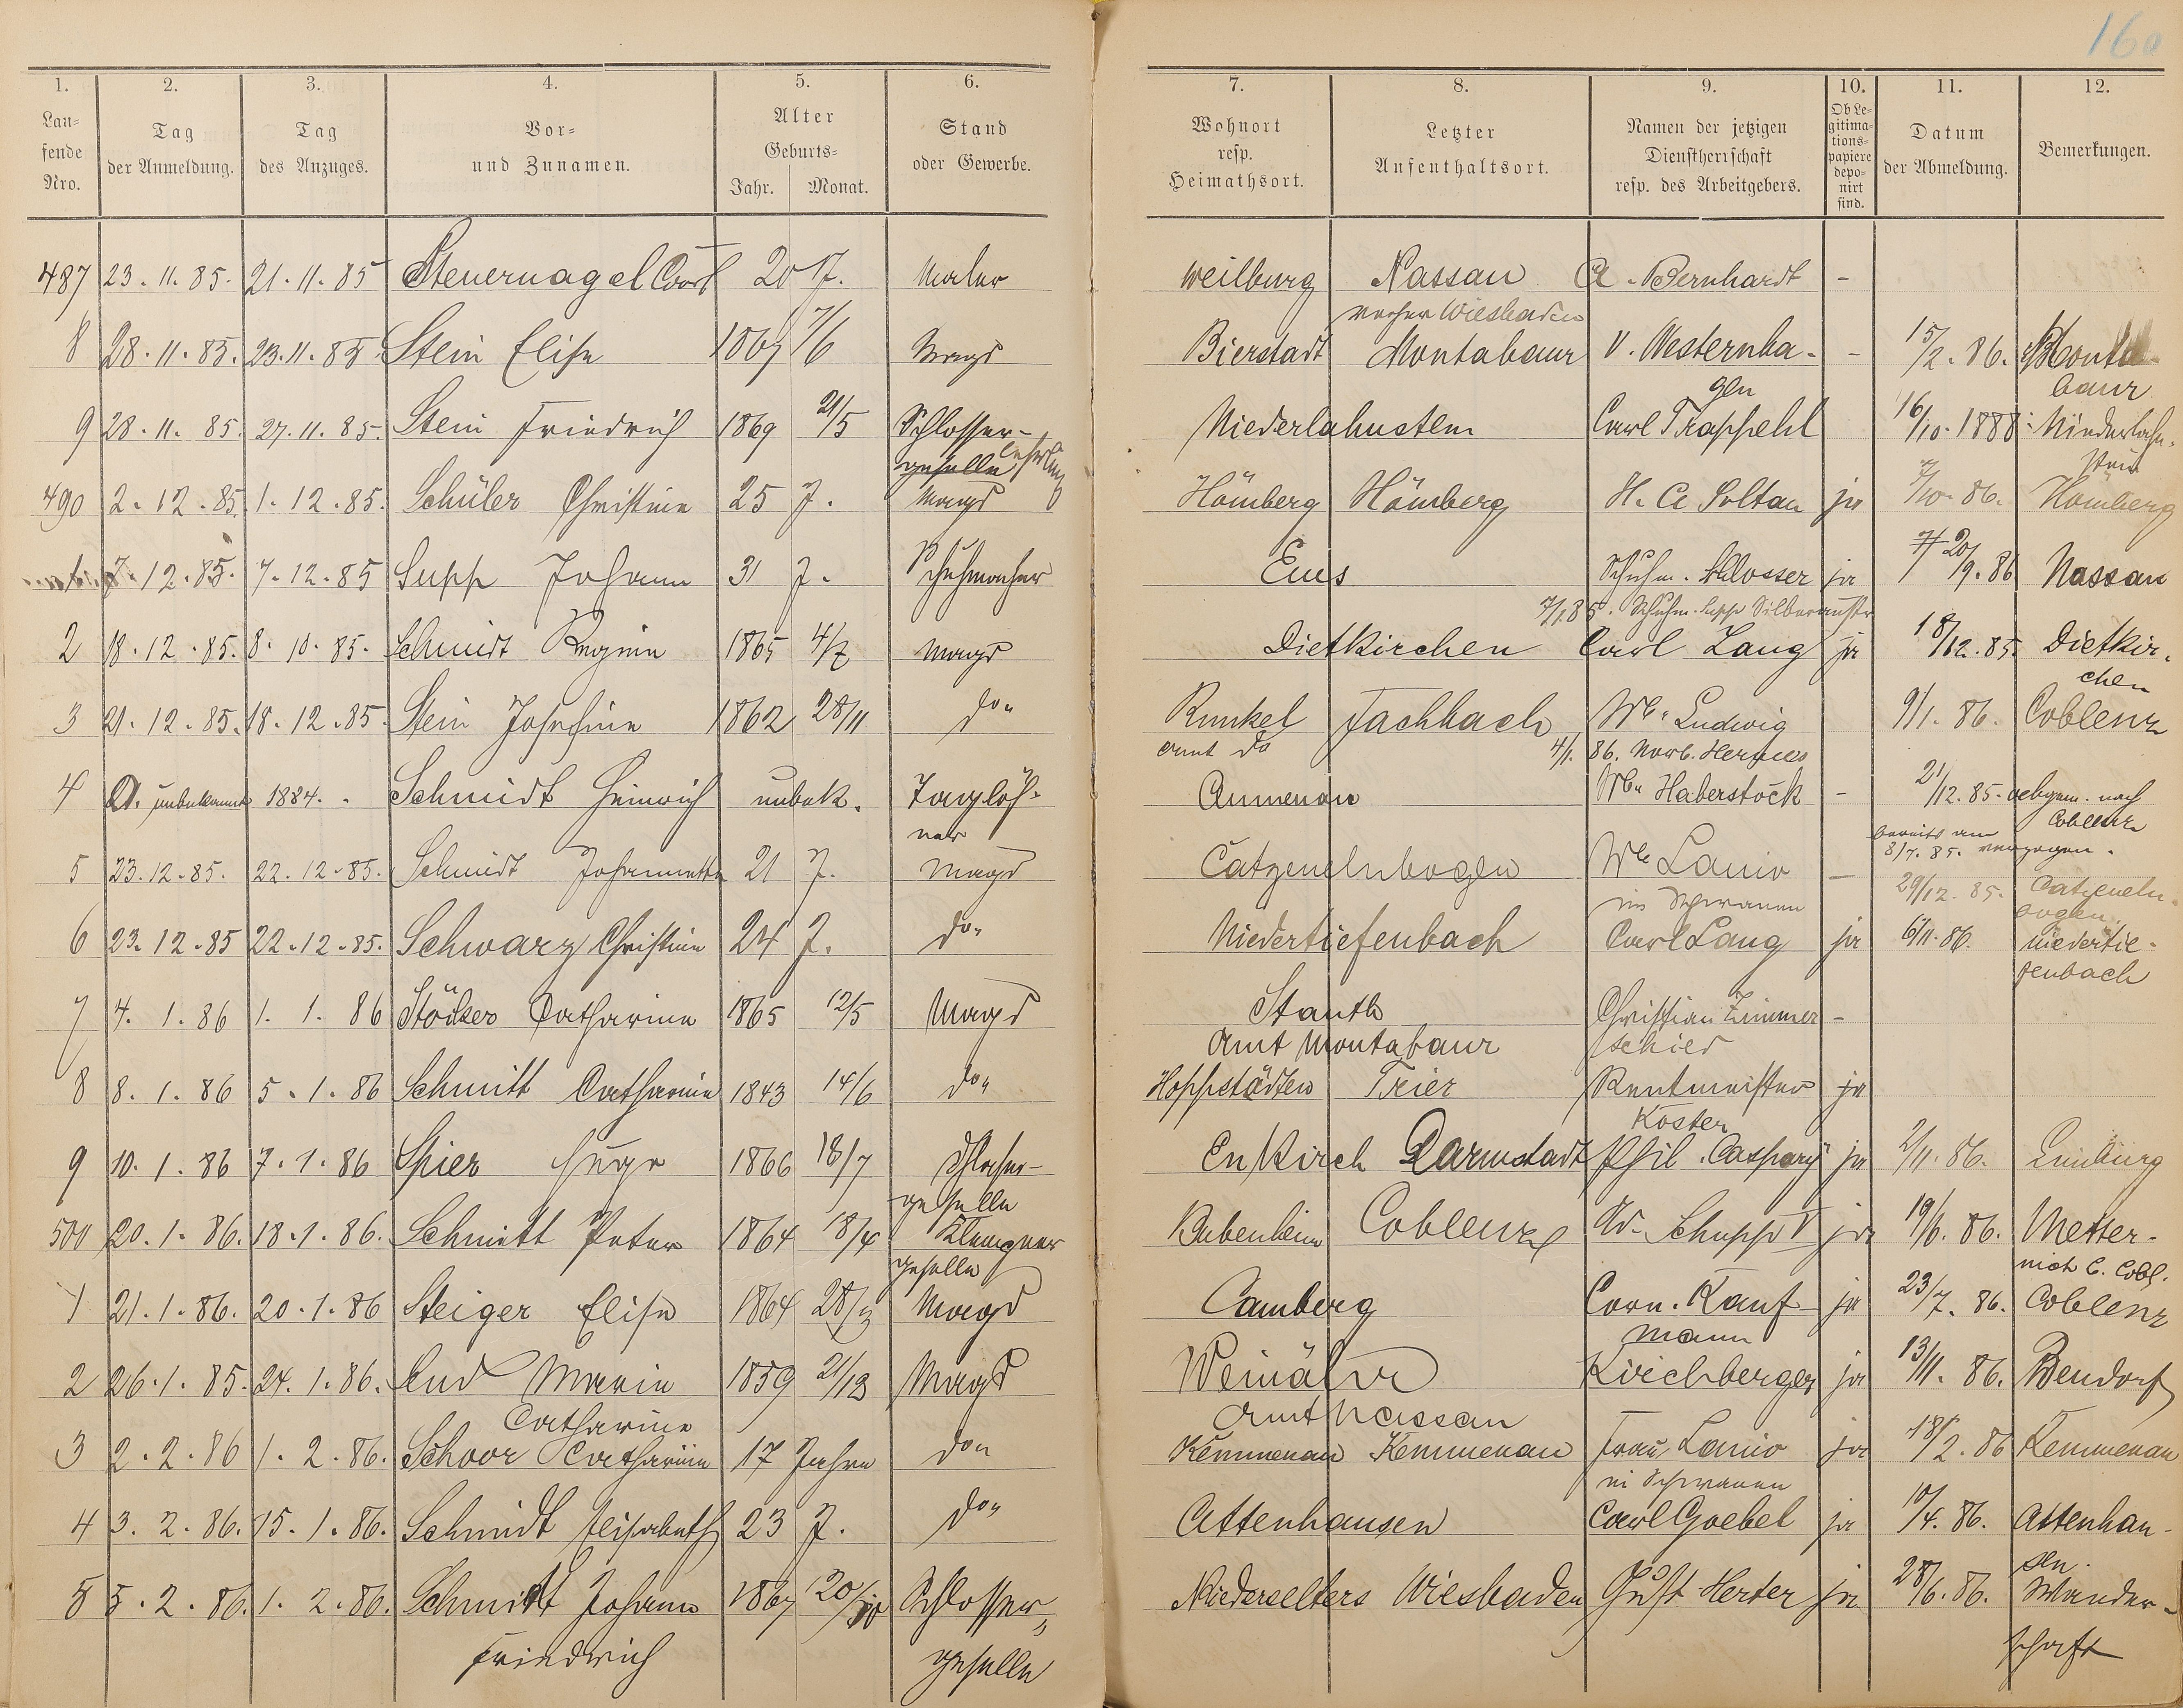 160
1. 2. 3. 4. 5. 6. 7. 8. 9. 10. 11. 12.
Lau-
fende
Nro.
Tag
der Anmeldung.
Tag
des Anzuges.
Vor-
und Zunamen.
Alter
Geburts-
Jahr. Monat.
Stand
oder Gewerbe.
Wohnort
resp.
Heimathsort.
Letzter
Aufenthaltsort.
Namen der jetzigen
Dienstherrschaft
resp. des Arbeitgebers.
Ob Le-
gitima-
tions-
papiere
depo-
nirt
sind.
Datum
der Abmeldung.
Bemerkungen.
487 23. 11. 85. 21. 11. 85 Steuernagel Carl 20 J. Maler Weilburg Nassau A. Bernhardt -
vorher Wiesbaden
8 28. 11. 85. 23. 11. 85. Stein Elise 1867 7/6 Magd Bierstadt Montabaur v. Westernha- - 15/2. 86. Monta-
gen baur
9 28. 11. 85. 27. 11. 85. Stein Friedrich 1869 21/5 Schlosser- Niederlahnstein Carl Trappehl 16/10. 1888. Niederlahn-
geselle lehrling stein
490 2. 12. 85. 1. 12. 85. Schüler Christine 25 J. Magd Hömberg Hömberg H. A Soltau ja 7/10. 86. Hömberg
1 7. 12. 85. 7. 12. 85 Supp Johann 31 J. Schuhmacher Ems Schuhm. Schlosser ja 20/9. 86 Nassau
7/1. 85. Schuhm. Supp Silberaustr
2 18. 12. 85. 8. 10. 85. Schmidt Regina 1865 4/7 Magd Dietkirchen Carl Lang ja 18/12. 85. Dietkir-
chen
3 21. 12. 85. 18. 12. 85. Stein Josephine 1862 28/11 do. Runkel Fachbach We. Ludwig 9/1. 86. Coblenz
Amt do 4/1. 86. Norb. Hermes
4 A. unbekannt 1884. Schmidt Heinrich unbek. Taglöh- Aumenau We. Haberstock - 21/12. 85. abgem. nach
ner Coblenz
bereits am
8/7. 85. verzogen.
5 23. 12. 85. 22. 12. 85. Schmidt Johannette 21 J. Magd Catzenelnbogen We Lanio - 29/12. 85. Catzeneln-
im Schwanen bogen.
6 23. 12. 85 22. 12. 85. Schwarz Christine 24 J. do. Niedertiefenbach Carl Lang ja 6/11. 86. Niedertie-
fenbach
7 4. 1. 86 1. 1. 86 Stöcker Catharina 1865 12/5 Magd Stauth Christian Zimmer- -
Amt Montabaur schied
8 8. 1. 86 5. 1. 86 Schmitt Catharine 1843 14/6 do. Hoppstädten Trier Rentmeister ja
Koster
9 10. 1. 86 7. 1. 86 Spier Hugo 1866 18/7 Schlosser- Enkirch Darmstadt Phil. Caspary ja 2/11. 86. Limburg
geselle
500 20. 1. 86. 18. 1. 86. Schmitt Peter 1864 18/4 Klempner Bubenheim Coblenz W. Schupp V ja 19/6. 86. Metter-
geselle nich b. Cobl.
1 21. 1. 86. 20. 1. 86 Steiger Elise 1864 28/3 Magd Camberg Corn. Kauf- ja 23/7. 86. Coblenz
mann
2 26. 1. 85. 24. 1. 86. Maria 1859 21/12 Magd Weinähr Kirchberger ja 13/11. 86. Bendorf
Catharine Amt Nassau
3 2. 2. 86 1. 2. 86. Schoor Catharine 17 Jahre do. Kemmenau Kemmenau Frau Lanio ja 18/2. 86 Kemmenau
im Schwanen
4 3. 2. 86. 15. 1. 86. Schmidt Elisabeth 23 J. do. Attenhausen Carl Goebel ja 10/4. 86. Attenhau-
sen.
5 5. 2. 86. 1. 2. 86. Schmidt Johann 1867 20/10 Schlosser- Niederselters Wiesbaden Gust Herter ja 28/6. 86. Wander-
Friedrich geselle schaft